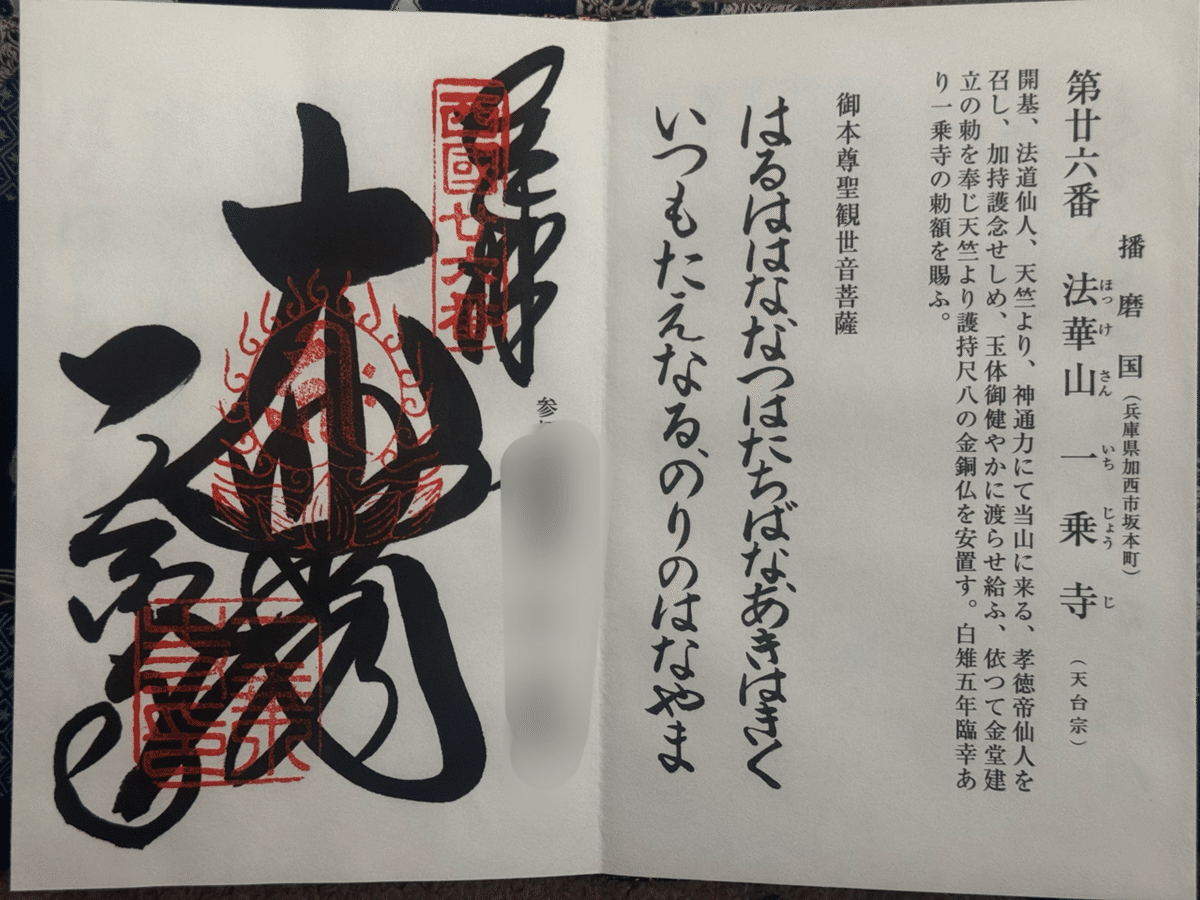 播磨国(兵庫県加西市坂本町)
第廿六番 法華山一乗寺 (天台宗)
ほっ け さん いち じょう じ
開基、法道仙人、天竺より、神通力にて当山に来る、孝徳帝仙人を
召し、加持護念せしめ、玉体御健やかに渡らせ給ふ、依つて金堂建
立の勅を奉じ天竺より護持尺八の金銅仏を安置す。白雉五年臨幸あ
り一乗寺の勅額を賜ふ。
御本尊聖観世音菩薩
はるははな、なつはたちばな、あきはきく
いつもたえなる、のりのはなやま
参
西國廿六番
大悲
一乗寺